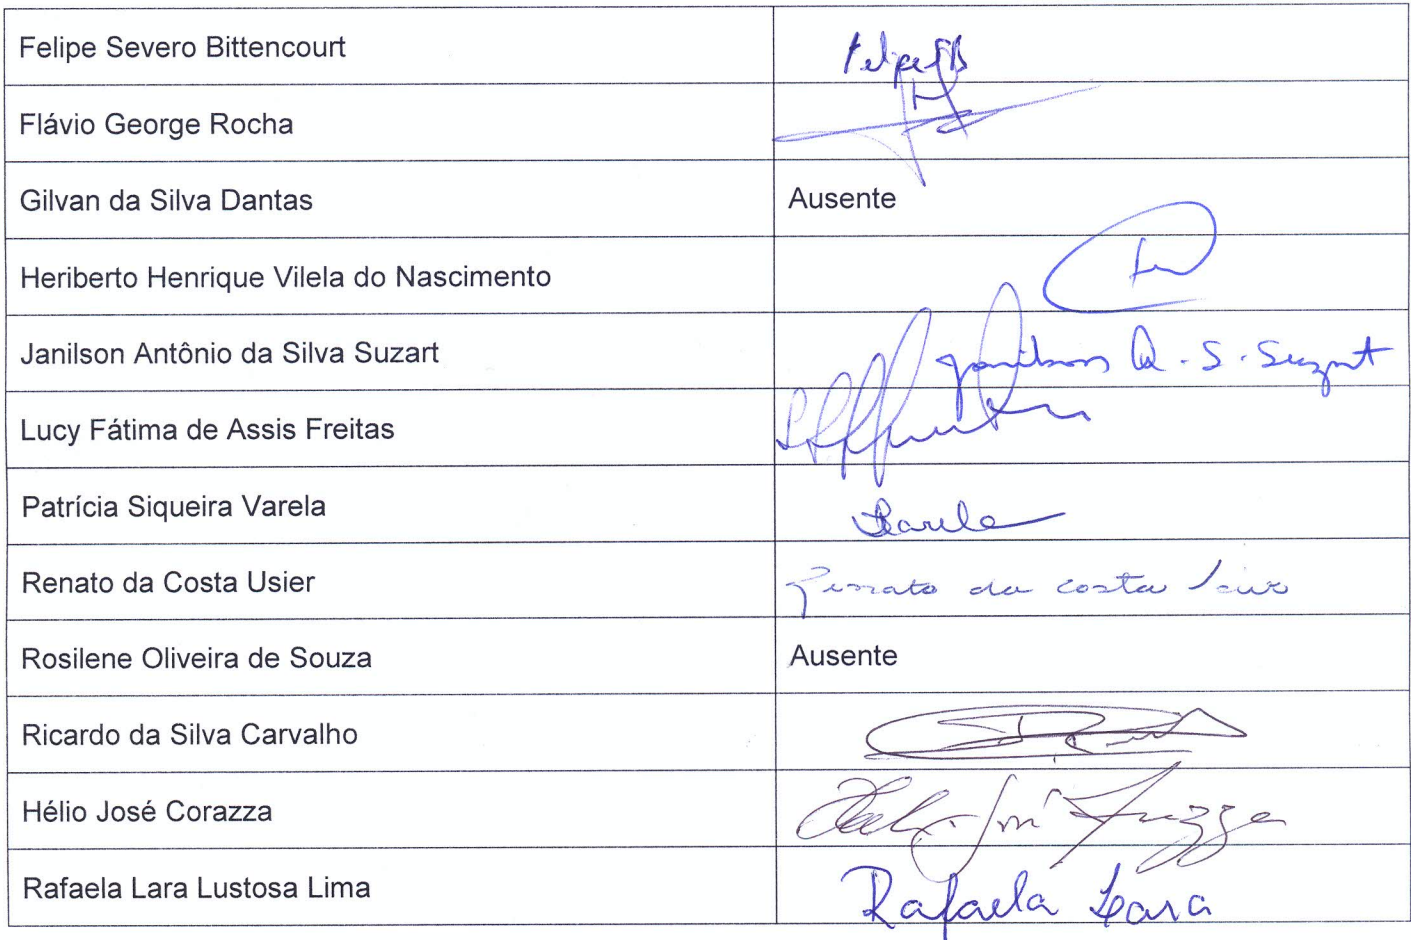 Felipe Severo Bittencourt FelipeSB
Flávio George Rocha
Gilvan da Silva Dantas Ausente
Heriberto Henrique Vilela do Nascimento
Janilson Antônio da Silva Suzart Janilson A. S. Suzart
Lucy Fátima de Assis Freitas
Patrícia Siqueira Varela
Renato da Costa Usier Renato da Costa
Rosilene Oliveira de Souza Ausente
Ricardo da Silva Carvalho
Hélio José Corazza
Rafaela Lara Lustosa Lima Rafaela Lara